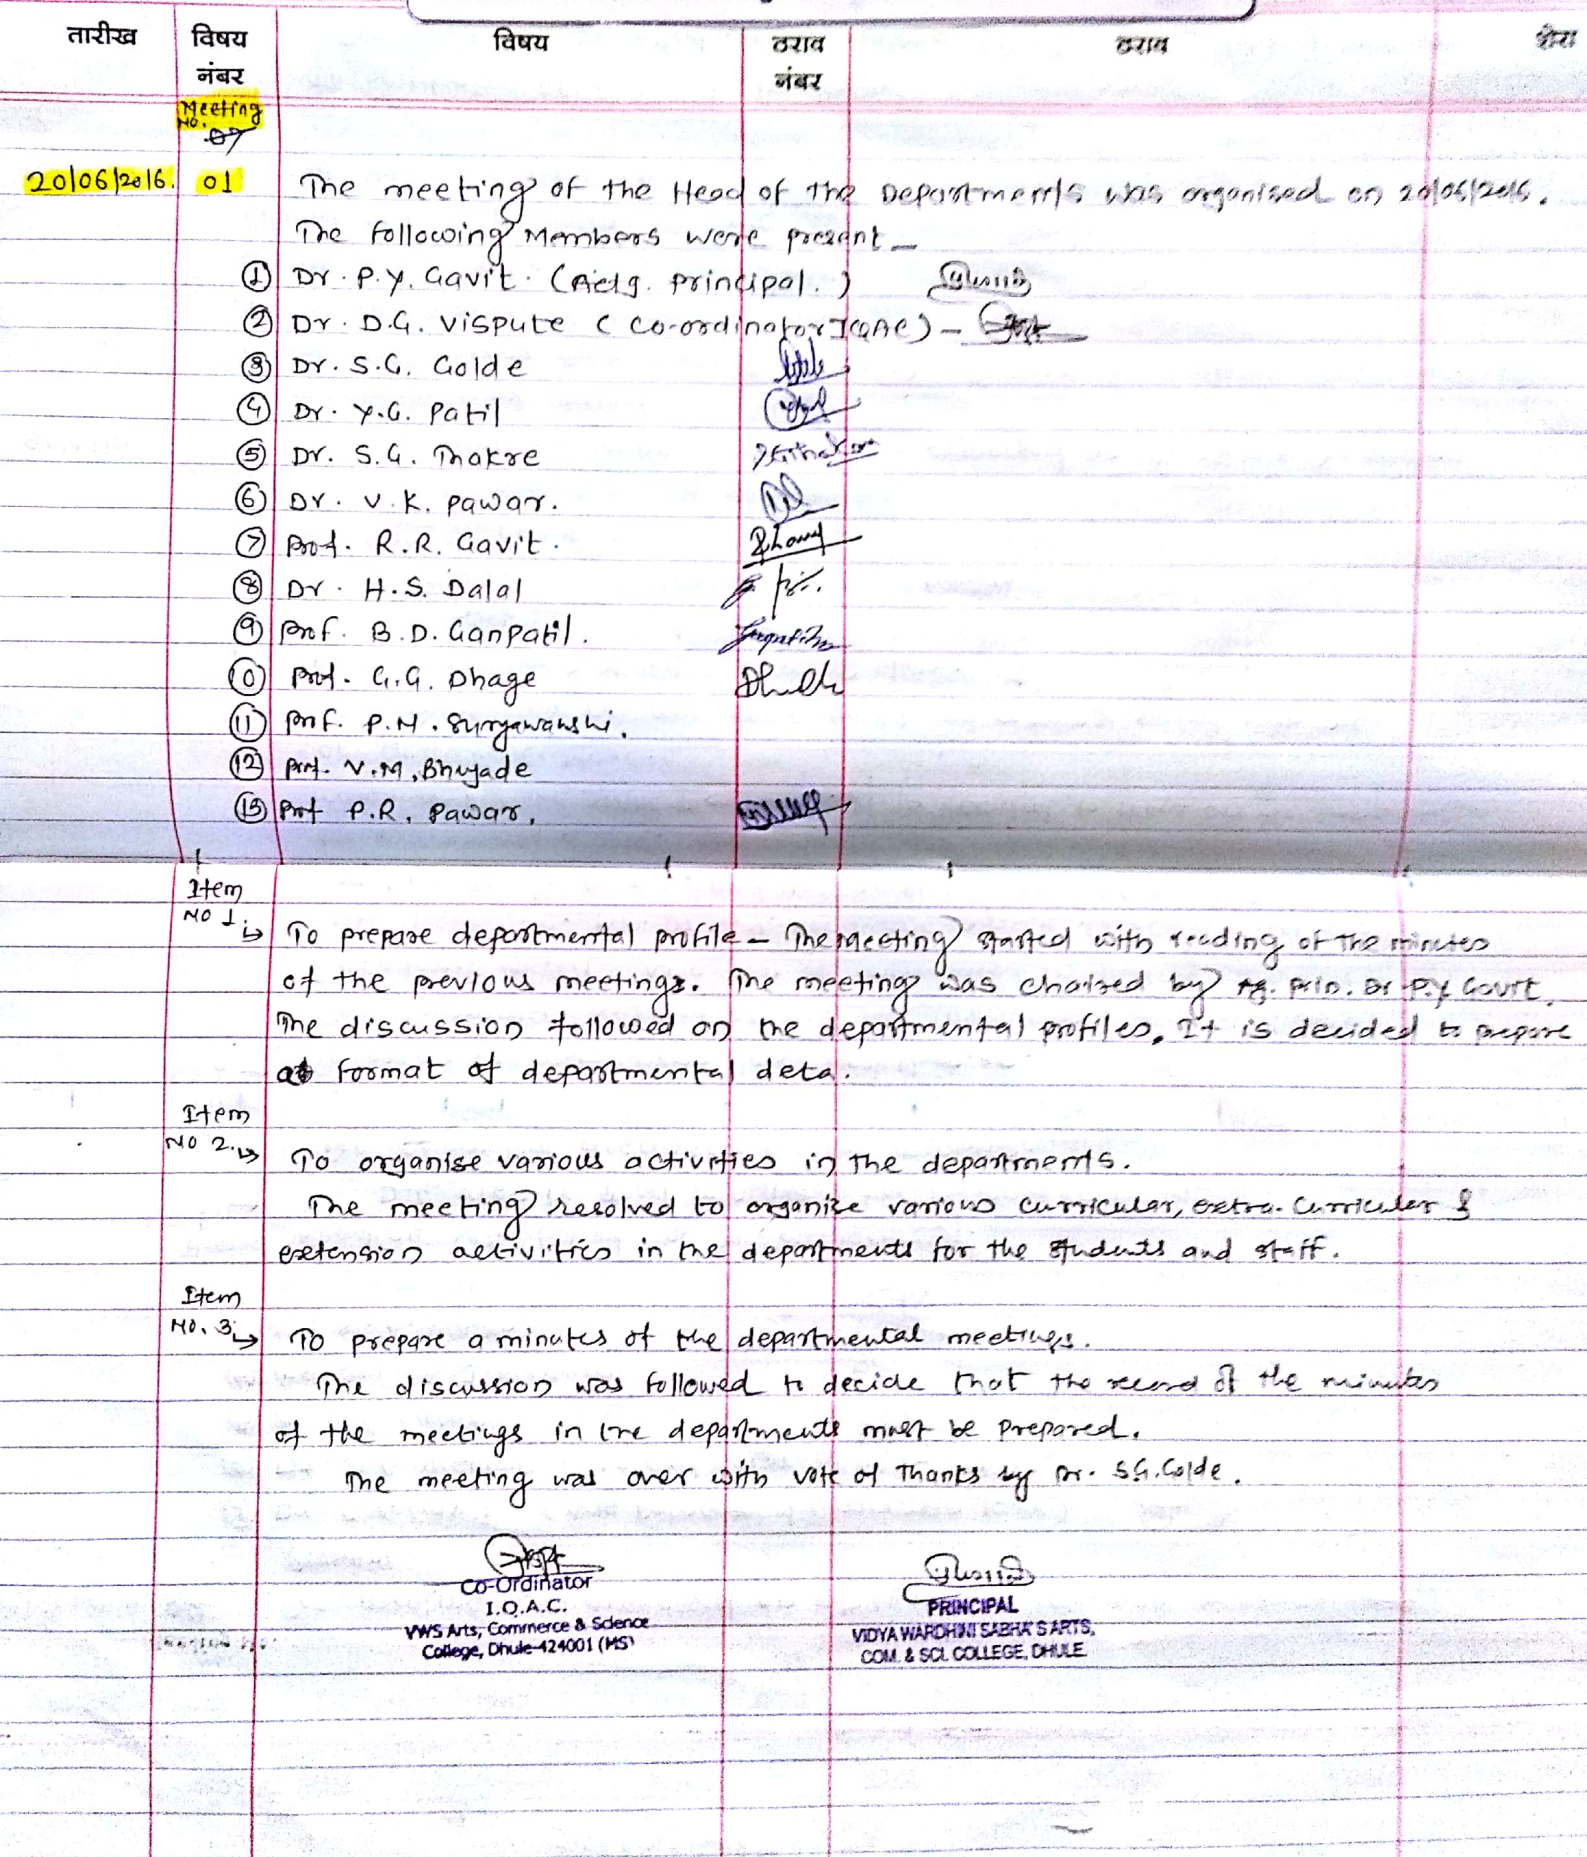 तारीख विषय नंबर विषय ठराव नंबर ठराव शेरा
Meeting
No.
07
20/06/2016. 01 The meeting of the Head of the Departments was organised on 20/06/2016.
The following Members were present -
① Dr. P.Y. Gavit. (Actg. principal.)
② Dr. D.G. Vispute ( Co-ordinator IQAC) -
③ Dr. S.G. Golde
④ Dr. Y.G. Patil
⑤ Dr. S.G. Thakre
⑥ Dr. V.K. Pawar.
⑦ Prof. R.R. Gavit.
⑧ Dr. H.S. Dalal
⑨ Prof. B.D. Ganpatil.
⑩ Prof. G.G. Dhage
⑪ Prof. P.N. Suryawanshi.
⑫ Prof. V.M. Bhujade
⑬ Prof P.R. Pawar.
Item
No 1 ↳ To prepare departmental profile - The meeting started with reading of the minutes
of the previous meetings. The meeting was chaired by Ag. Prin. Dr P.Y Gavit.
The discussion followed on the departmental profiles. It is decided to prepare
format of departmental deta.
Item
No 2. ↳ To organise various activities in the departments.
The meeting resolved to organize various curricular, extra-curricular &
extension activities in the departments for the students and staff.
Item
No. 3 ↳ To prepare a minutes of the departmental meetings.
The discussion was followed to decide that the record of the minutes
of the meetings in the departments must be prepared.
The meeting was over with vote of Thanks by Dr. S.G. Golde.
Co-Ordinator
I.Q.A.C.
VWS Arts, Commerce & Science
College, Dhule-424001 (MS)
PRINCIPAL
VIDYA WARDHINI SABHA'S ARTS,
COM. & SCI. COLLEGE, DHULE